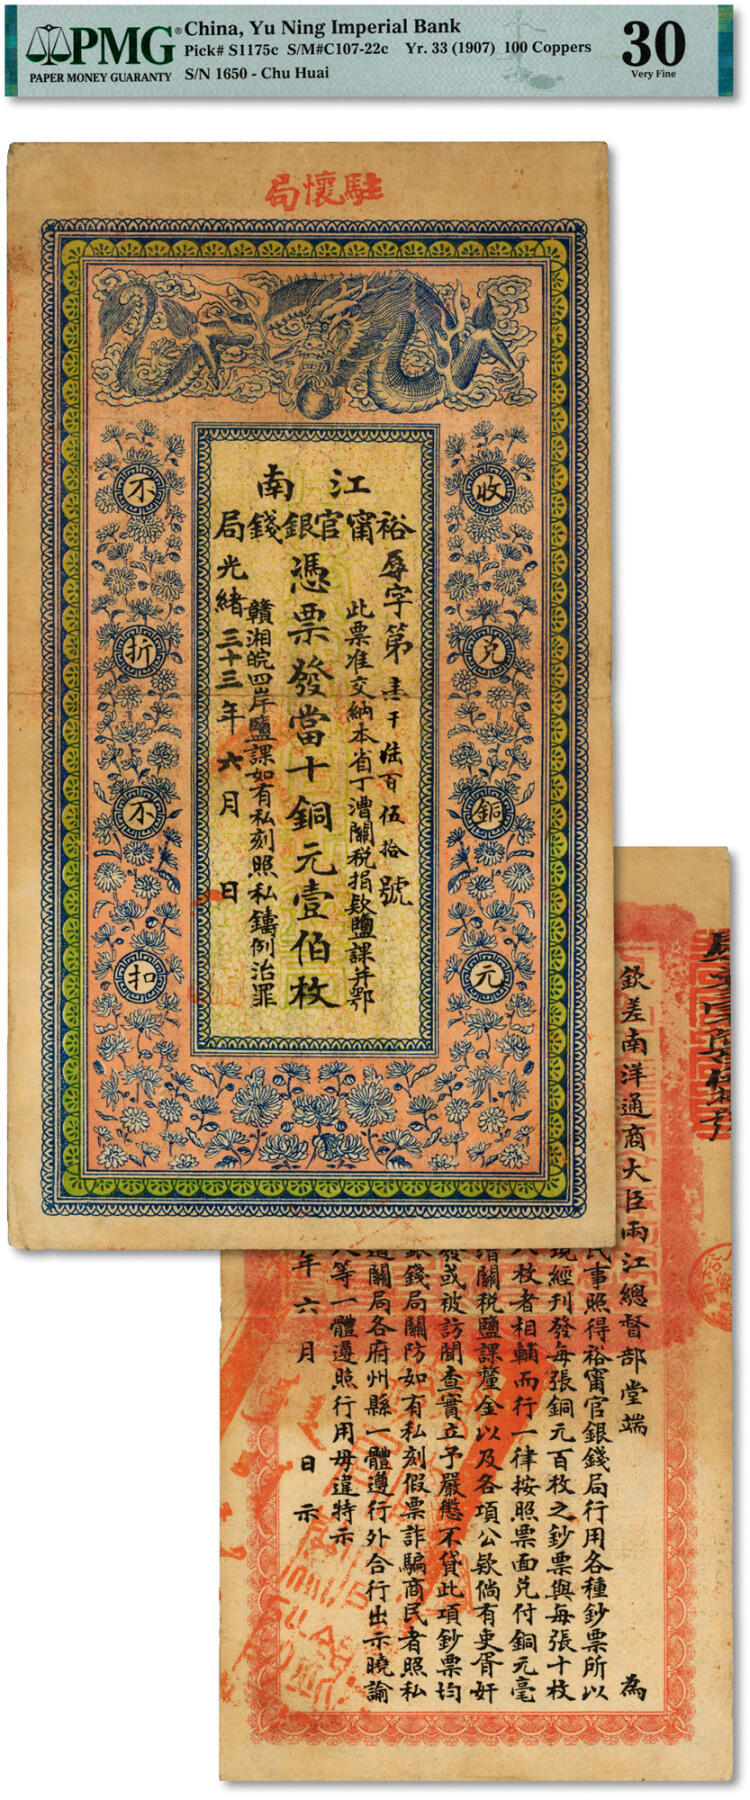 PMG®
PAPER MONEY GUARANTY
China, Yu Ning Imperial Bank
Pick# S1175c S/M#C107-22c Yr. 33 (1907) 100 Coppers
S/N 1650 - Chu Huai
30
Very Fine
駐懷局
江南
裕甯官銀錢局
收兌銅元
不折不扣
辱字第壹千陸百伍拾號
此票准交納本省丁漕關稅捐款鹽課并鄂
憑票發當十銅元壹佰枚
贛湘皖四岸鹽課如有私刻照私鑄例治罪
光緒三十三年六月 日
欽差南洋通商大臣兩江總督部堂端
為
民事照得裕甯官銀錢局行用各種鈔票所以
現經刊發每張銅元百枚之鈔票與每張十枚
枚者相輔而行一律按照票面兌付銅元毫
漕關稅鹽課釐金以及各項公款倘有吏胥奸
發或被訪聞查實立予嚴懲不貸此項鈔票均
銀錢局關防如有私刻假票詐騙商民者照私
道關局各府州縣一體遵行外合行出示曉諭
人等一體遵照行用毋違特示
年六月 日示